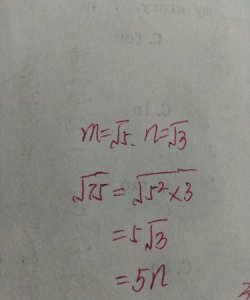 m=√5. n=√3
√75 = √5²×3
= 5√3
= 5n